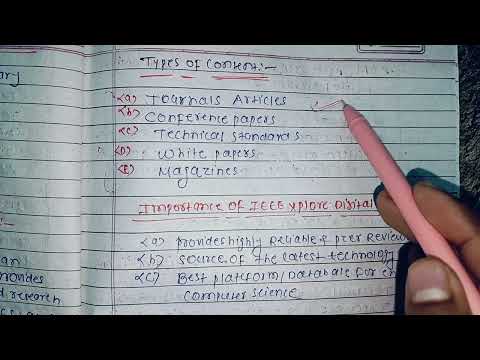 Types of Content:-
<a> Journals Articles
<b> Conference papers
<c> Technical standards
<D> White papers
<E> Magazines
Importance of IEEE Xplore Digital
<a> provides highly Reliable & peer Review
<b> source of the latest technology
<c> Best platform/Database for
computer science
rovides
research